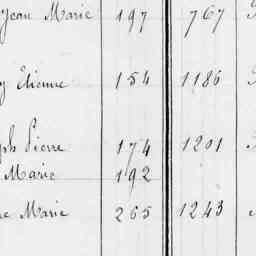 Jean Marie 197 767
Etienne 154 1186
ph Pierre 174 1201
Marie 192
e Marie 265 1243